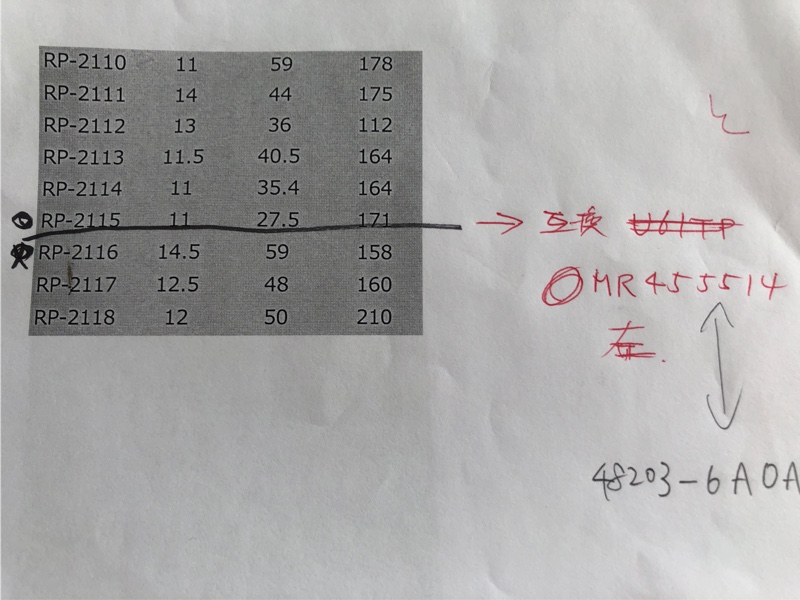 RP-2110 11 59 178
RP-2111 14 44 175
RP-2112 13 36 112
RP-2113 11.5 40.5 164
RP-2114 11 35.4 164
RP-2115 11 27.5 171 → 互換
RP-2116 14.5 59 158
RP-2117 12.5 48 160
RP-2118 12 50 210
MR455514
左
48203-6A0A